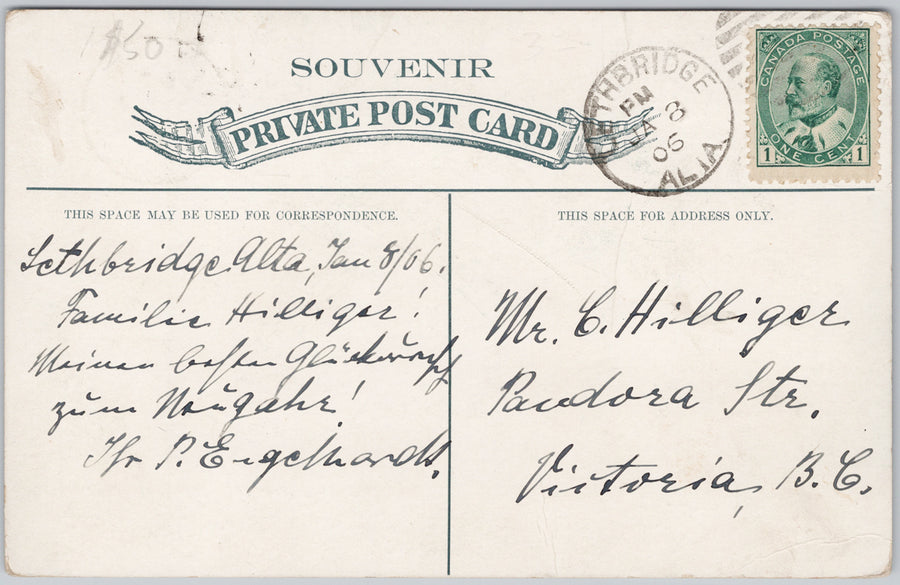 $50
SOUVENIR
PRIVATE POST CARD
LETHBRIDGE
PM
JA 8
06
ALTA
CANADA POSTAGE
1 ONE CENT 1
THIS SPACE MAY BE USED FOR CORRESPONDENCE.
Lethbridge Alta, Jan 8/06.
Familie Hilliger!
Meinen besten Glückwunsch
zum Neujahr!
Ihr P. Engelhardt.
THIS SPACE FOR ADDRESS ONLY.
Mr. C. Hilliger
Pandora Str.
Victoria, B.C.